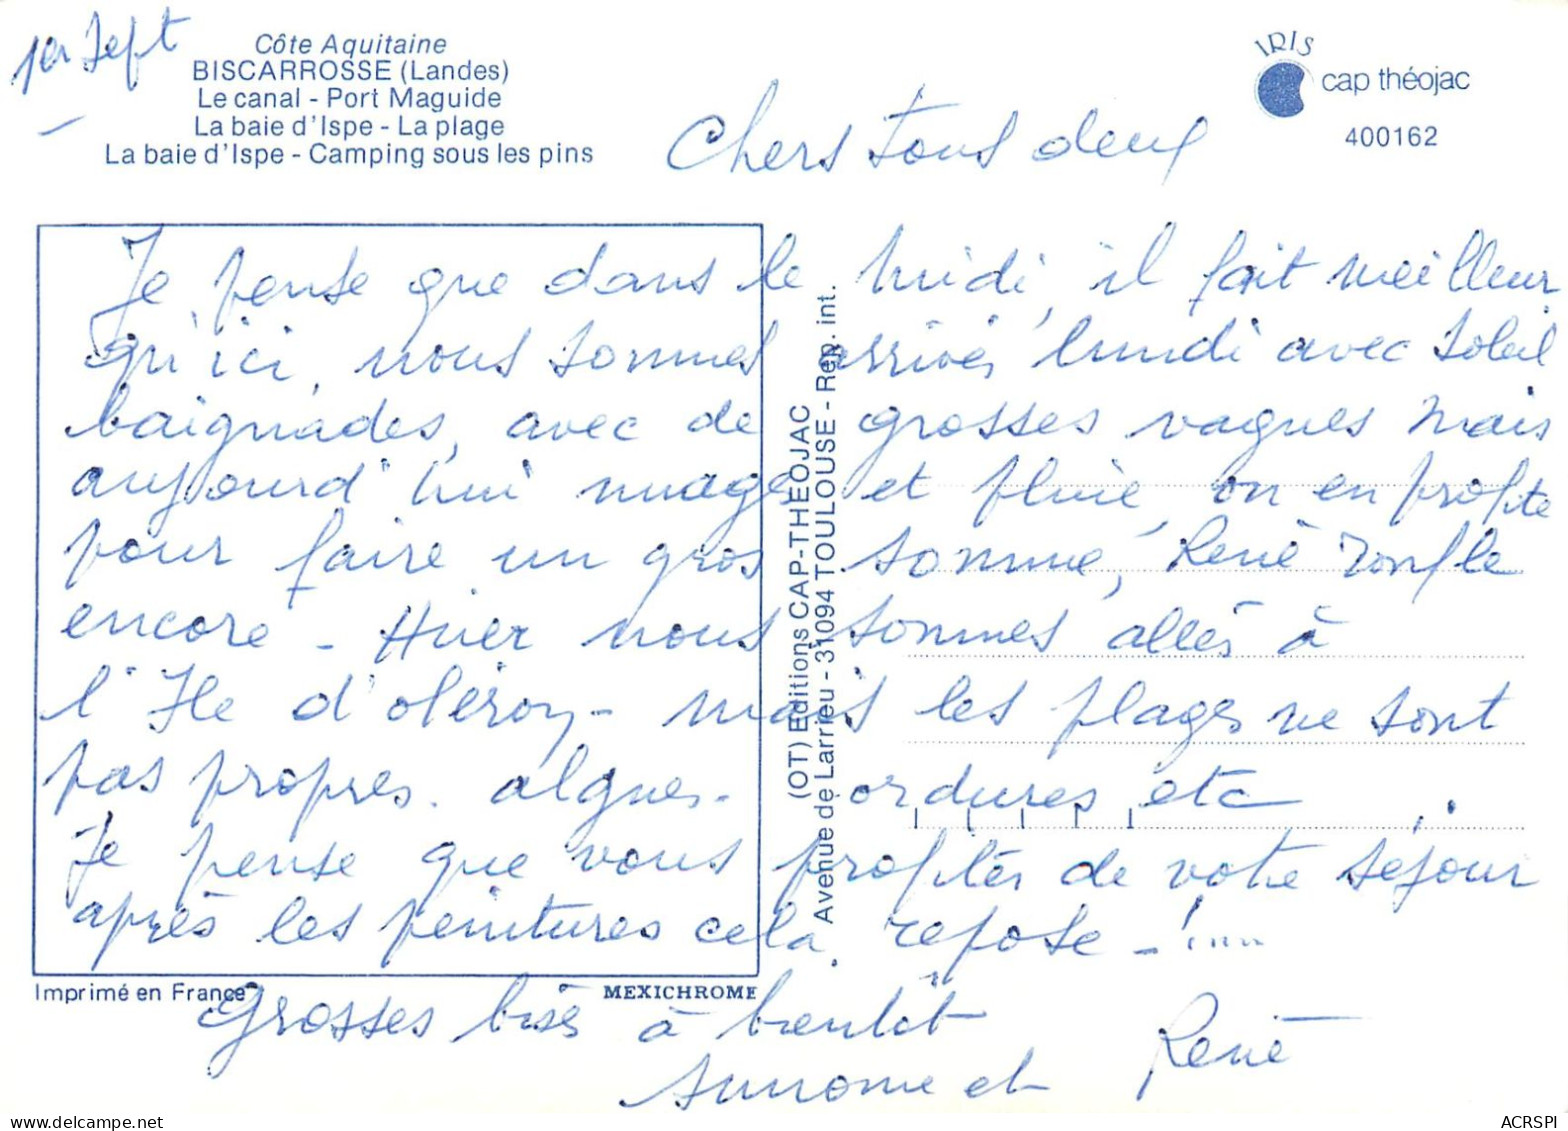 1er Sept
Côte Aquitaine
BISCARROSSE (Landes)
Le canal - Port Maguide
La baie d'Ispe - La plage
La baie d'Ispe - Camping sous les pins
IRIS
cap théojac
400162
Chers tous deux
Je pense que dans le midi, il fait meilleur
qu'ici, nous sommes arrivés lundi avec soleil
baignades, avec de grosses vagues mais
aujourd'hui nuages et pluie, on en profite
pour faire un gros somme, René ronfle
encore - Hier nous sommes allés à
l'Ile d'oléron - mais les plages ne sont
pas propres. algues - ordures etc.
Je pense que vous profités de votre séjour
après les peintures cela repose - !....
Grosses bises à bientôt
Simone et René
(OT) Editions CAP-THEOJAC
Avenue de Larrieu - 31094 TOULOUSE - Rep. int.
Imprimé en France
MEXICHROME
ACRSPI